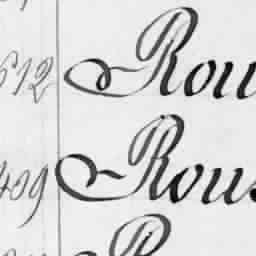 612 Rou
409 Rous
R